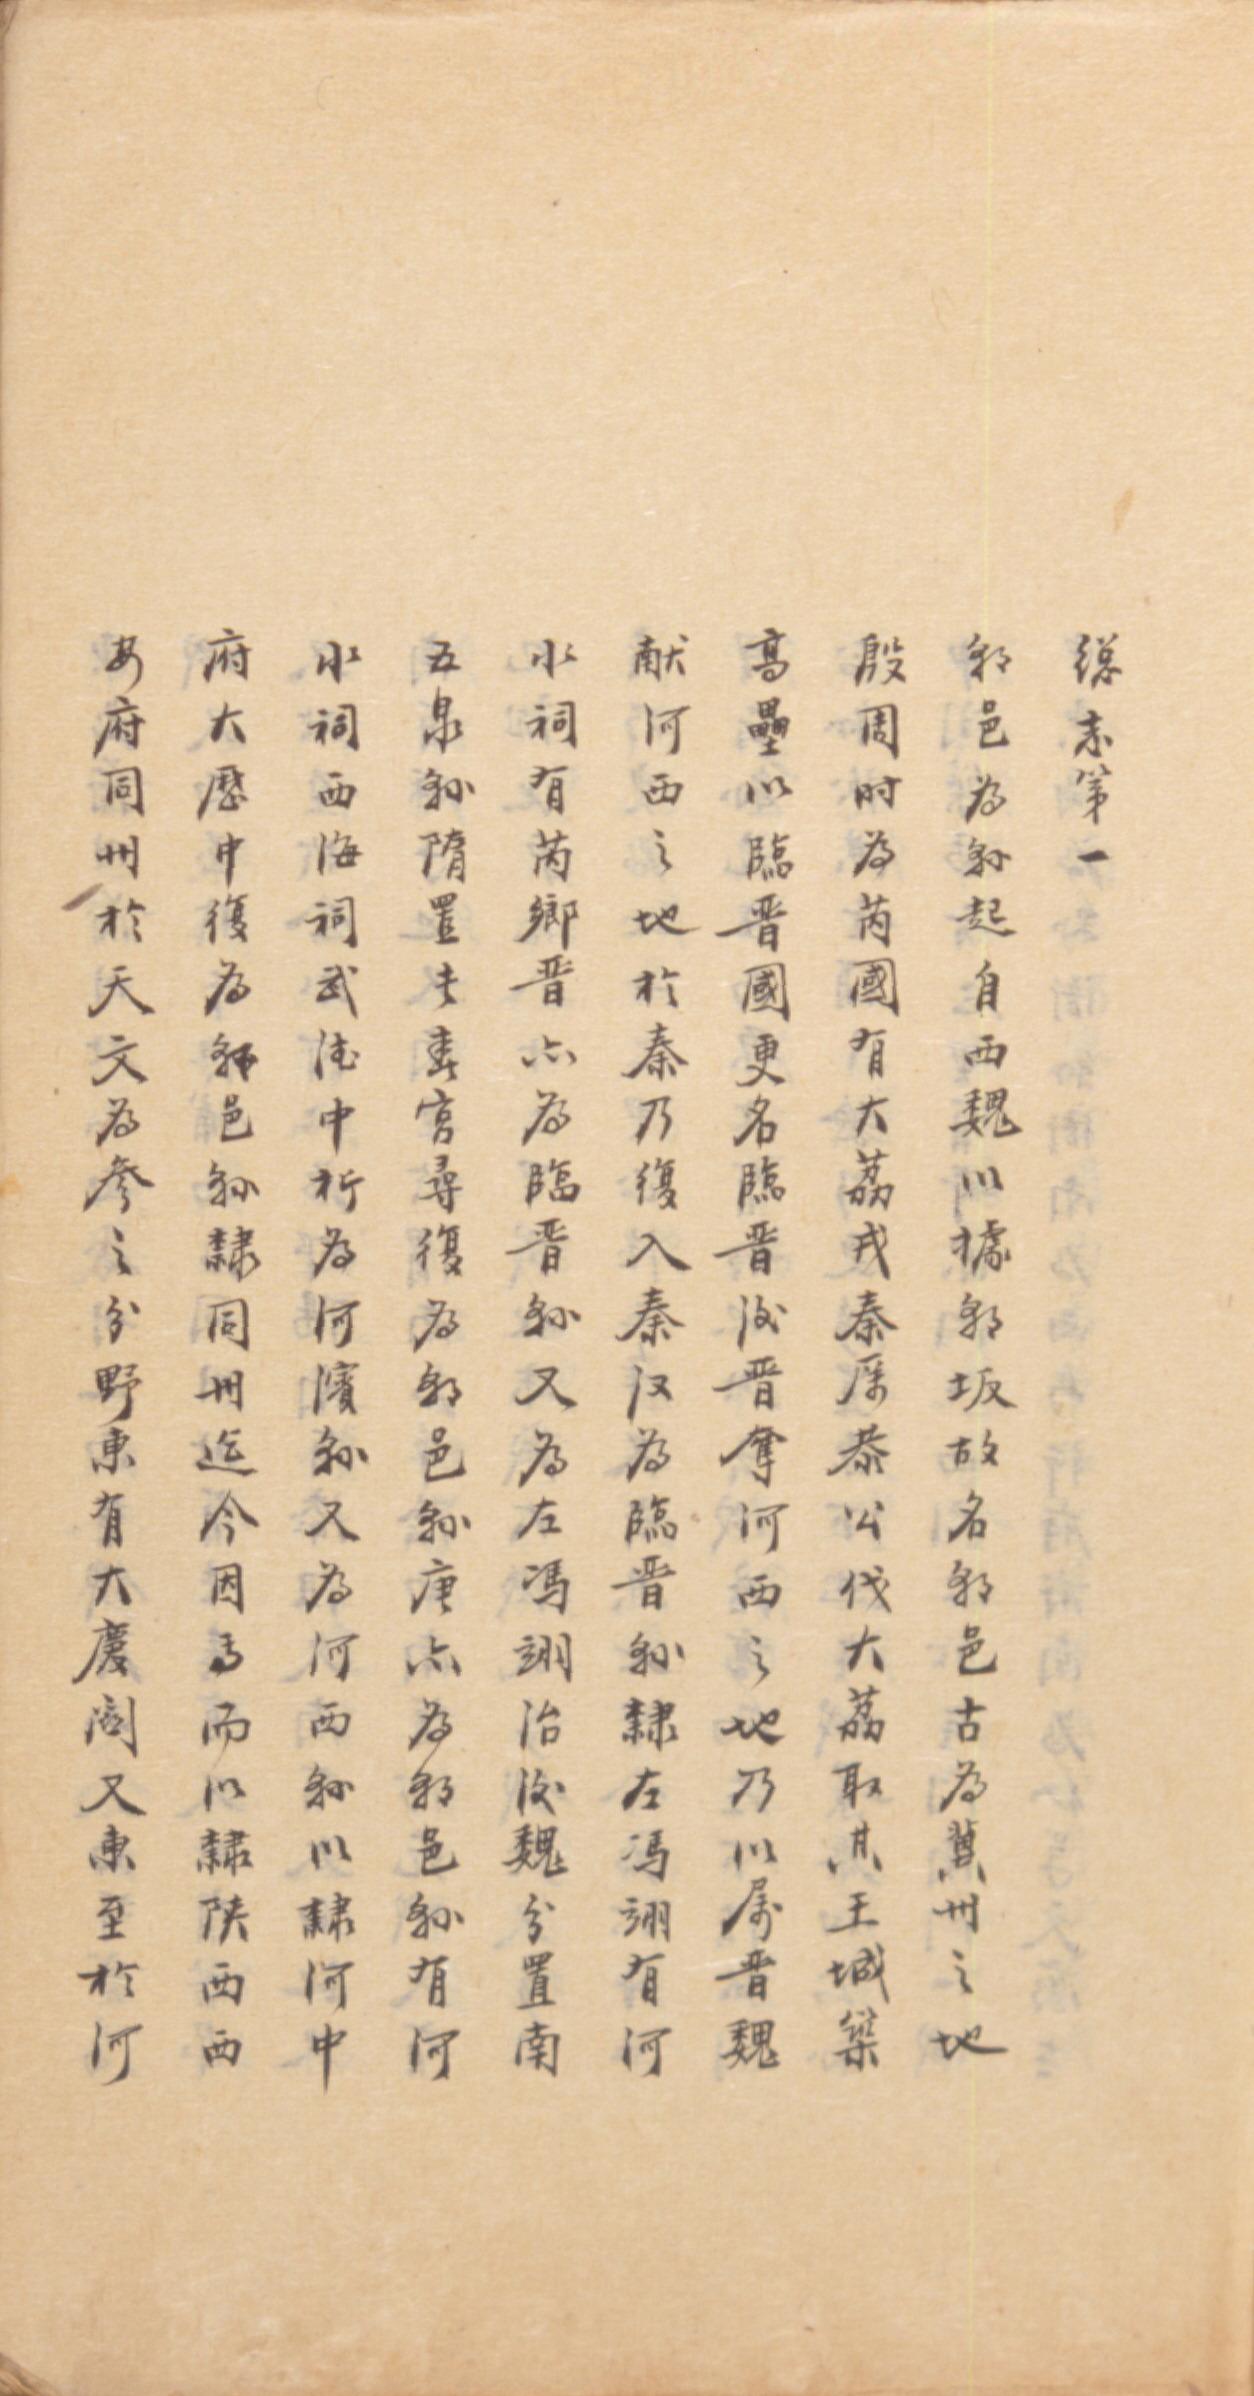 總志第一
朝邑為縣起自西魏以據朝坂故名朝邑古為冀州之地
殷周時為芮國有大荔戎秦厲恭公伐大荔取其王城築
高壘以臨晋國更名臨晋後晋奪河西之地乃以屬晋魏
献河西之地於秦乃復入秦汉為臨晋縣隸左馮翊有河
水祠有芮鄉晋亦為臨晋縣又為左馮翊治後魏分置南
五泉縣隋置長春宮尋復為朝邑縣唐亦為朝邑縣有河
水祠西海祠武德中析為河濱縣又為河西縣以隸河中
府大歷中復為朝邑縣隸同州迄今因焉而以隸陕西西
安府同州於天文為參之分野東有大慶関又東至於河